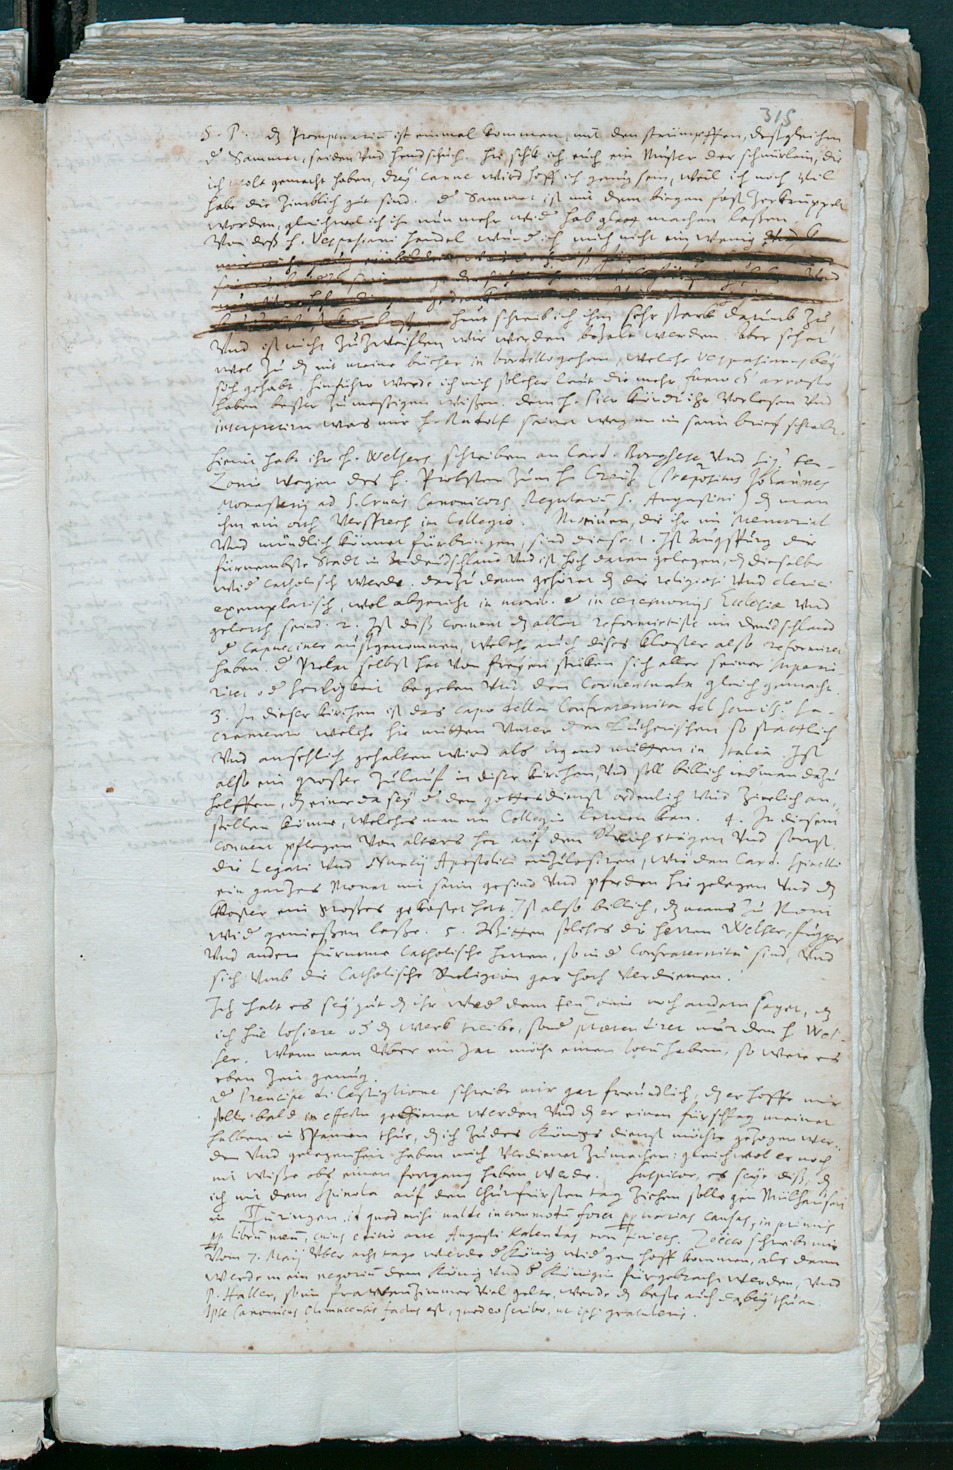 315
S. P. dz Promptuariũ ist einmal kommen, mit den strümpffen, deßgleichen
d Sammet, seiden und handschuch. Hie schik ich euch ein Muster der schnürlein, die
ich wolt gemacht haben, drey Canne wird hoff ich genug sein, weil ich noch vil
habe die zimblich gut sind. d Sammet ist mit dem biegen fast zerkrüppelt
worden, gleichwol ich ihn nun mehr wid hab glatt machen lassen.
Von deß h. Vespasiani handel wundert mich nicht ein wenig
hie schreib ich ihm sehr starck darumb zu
Und ist nicht zu zweiflen wir werden bezalt werden. Aber schaut
wol zu dz mit meine bücher in bordello gehen, welche Vespasianus bey
sich gehabt, hinfüro werde ich mich solcher leut die mehr
haben besser zu wissen. dem h. könd ihr vorlesen Und
interpretirn was mir h. Rudolf seinet wegen in seim brief schreibt.
Hiemit habt ihr h. Welsers schreiben an Card. Borghese Und Sig.r
wegen des h. Probsten zum h. Creutz (Praepositus Johannes
Monasterij ad S. Crucis Canonicorũ Regulariũ S. Augustini) dz man
ihm ein orth versprech im Collegio. Motiven, die ihr im Memorial
Und mündlich könnet fürbringen, sind diese. 1. Ist Augspurg die
fürnembste Stadt in deudschland Und ist hoch daran gelegen, dz dieselbe
wid Catholisch werde. darzu dann gehöret dz die religiosi Und clerici
exemplarisch, wol abgericht in morib. et in ceremonijs Ecclesiae Und
gelerth seind. 2. Ist diß Convent dz aller reformirtist in Deudschland
d Capucciner ausgenommen, welche auch dises kloster also reformirt
haben. d Prelat selbst hat von freyen stüken sich aller seiner Superio-
ritet od herligkeit begeben Und den Conventualn gleich gemacht.
3. In dieser kirchen ist das Capo della Confraternita del Sanctis.o Sa-
cramento welche hie mitten Unter den Lutherischen so stattlich
Und ansehlich gehalten wird als irgend mitten in Italia. Ist
also ein grosser zulauf in diser kirchen, Und soll billich iederman dazu
helffen, dz einer da sey d den gottesdienst ordenlich Und zierlich an-
stellen könne, welches man im Collegio lernen kan. 4. In diesem
Convent pflegen von alters her auf den Reichstagen Und sonst
die Legati Und Nuntij Apostolici einzulosiren, wie den Card. Spinelli
ein gantzes Monat mit seim gesind Und pferden hie gelegen Und dz
kloster ein grosses gekostet hat. Ist also billich, dz mans zu Rom
wid geniessen lasse. 5. Bitten solches die herren Welser, Fugger
Und andere fürneme Catholische herren, so in d Confraternitet sind, Und
sich Umb die Catholische Religion gar hoch verdienen.
Ich halt es sey gut dz ihr wed dem noch andern saget, dz
ich hie losiere od dz werk treibe, sond praetendiret nur den h. Wel-
ser. Wann man Uber ein Jar möcht einen locũ haben, so were es
eben zeit genug.
d Prencipe di Castiglione schreibt mir gar freundlich, dz er hoffe mir
solle bald in effectu gedienet werden Und dz er einen fürschlag meinet
halben in Spanien thue, dz ich zu des Königs dienst möchte gezogen wer-
den Und gelegenheit haben mich verdienet zu machen: gleichwol er noch
nit wisse obs einen fortgang haben werde. Suspicor, es seye diß, dz
ich mit dem Spinola auf den Churfürsten tag ziehen solle gen Mülhausen
in Türingen. id quod mihi valde incommodũ foret propter varias causas, in primis
propter librum meum, cuius editio ante Augusti Kalendas non finietʒ. Zotto schreibt mir
vom 7. Maij Uber acht tage werde d König wid gen hoff kommen, als dann
werde mein negotiũ dem König Und d Königin fürgebracht werden, Und
P. Haller, so im frawenzimmer viel gelte, werde dz beste auch dabey thun.
Ipse Canonicus Olomucensis factus est, quod eo scribo, ut ipsi gratuleris.